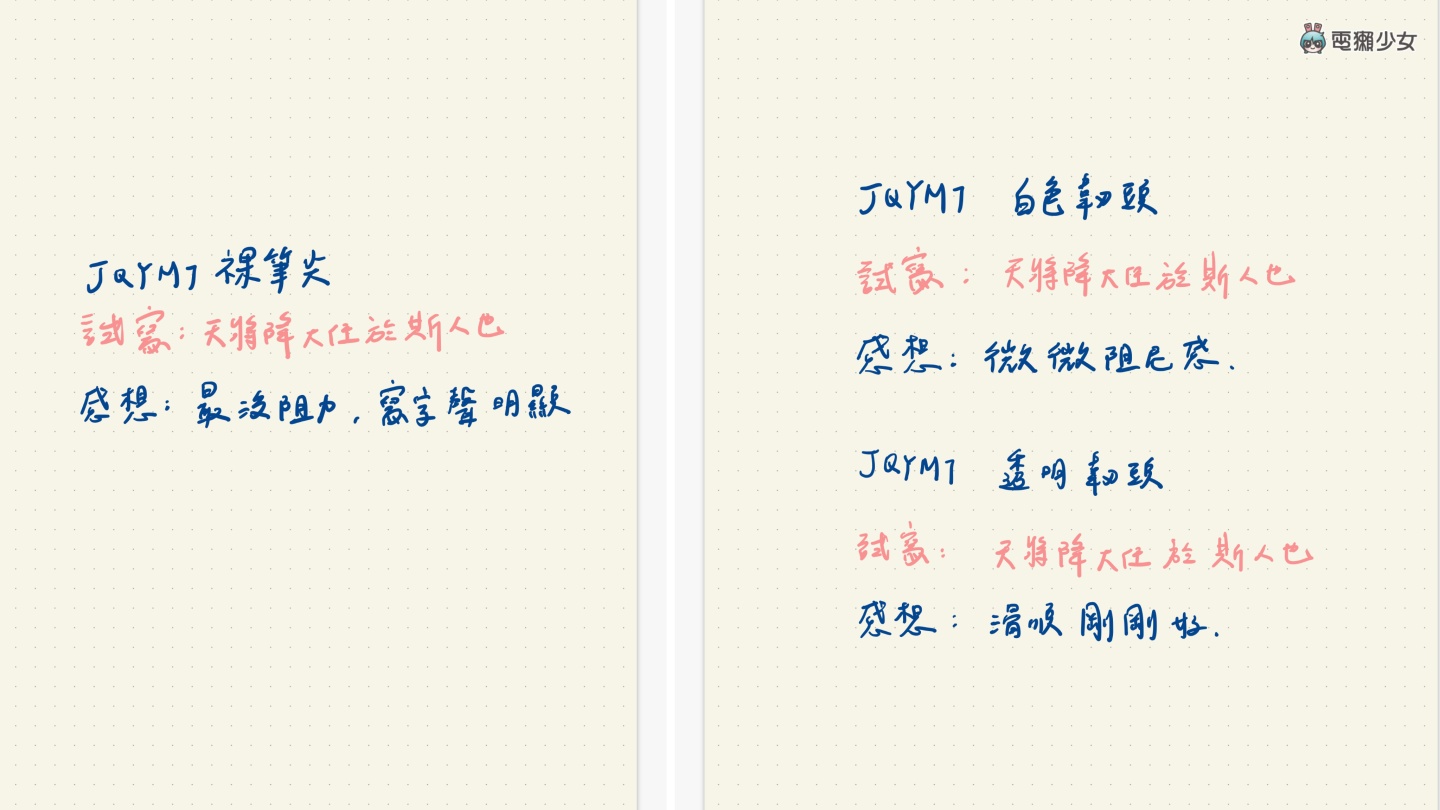 JQYM7 裸筆尖
試寫：天將降大任於斯人也
感想：最沒阻力，寫字聲明顯
電獺少女
JQYM7 白色韌頭
試寫：天將降大任於斯人也
感想：微微阻尼感.
JQYM7 透明韌頭
試寫：天將降大任於斯人也
感想：滑順剛剛好.